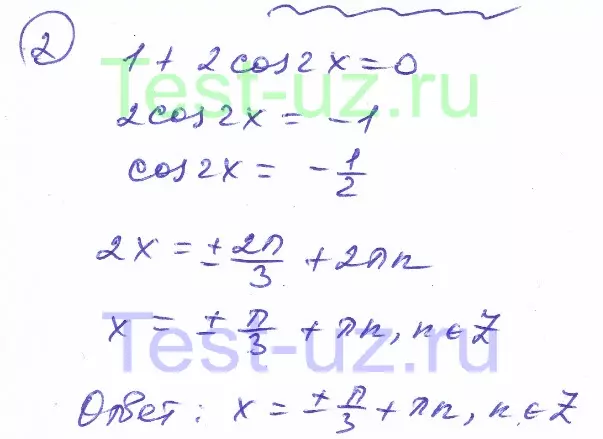 2
1 + 2cos2x = 0
2cos2x = -1
cos2x = -1/2
2x = ± 2π/3 + 2πn
x = ± π/3 + πn, n ∈ Z
Ответ: x = ± π/3 + πn, n ∈ Z
Test-uz.ru
Test-uz.ru